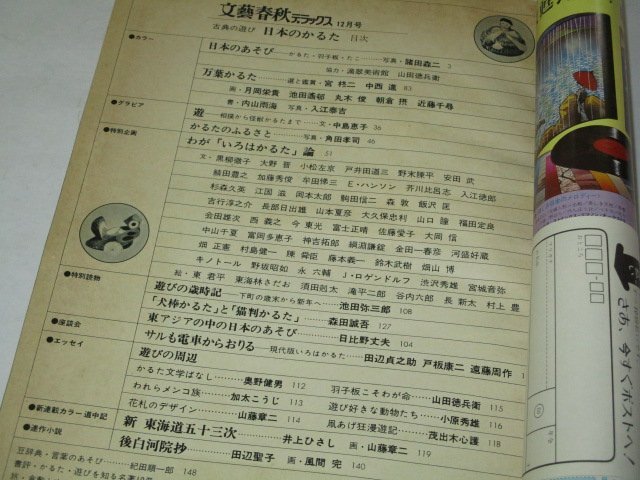 文藝春秋デラックス 12月号
古典の遊び 日本のかるた 目次
●カラー
日本のあそび かるた・羽子板・たこ 写真・諸田森二 3
協力・滴翠美術館 山田徳兵衛
万葉かるた 選と鑑賞・宮 柊二 中西 進 83
画・月岡栄貴 池田遙邨 丸木 俊 朝倉 摂 近藤千尋
書・内山雨海 写真・入江泰吉
●グラビア
遊 相撲から怪獣かるたまで 文・中島恵子 36
かるたのふるさと 写真・角田孝司 46
●特別企画
わが「いろはかるた」論 51
文・黒柳徹子 大野 晋 小松左京 戸井田道三 野末陳平 安田 武
鯖田豊之 加藤秀俊 牟田悌三 E・ハンソン 芥川比呂志 入江徳郎
杉森久英 江國 滋 岡本太郎 駒田信二 森 敦 飯沢 匡
吉行淳之介 長部日出雄 山本夏彦 大久保忠利 山口 瞳 福田定良
会田雄次 西 義之 今 東光 富士正晴 佐藤愛子 大岡 信
中山千夏 富岡多恵子 神吉拓郎 綱淵謙錠 金田一春彦 河盛好蔵
畑 正憲 村島健一 陳 舜臣 藤本義一 鈴木武樹 畑山 博
キノトール 野坂昭如 永 六輔 J・ロゲンドルフ 渋沢秀雄 宮城音弥
絵・東 君平 東海林さだお 須田剋太 滝平二郎 谷内六郎 長 新太 村上 豊
●特別読物
遊びの歳時記 下町の歳末から新年へ 池田弥三郎 108
「犬棒かるた」と「猫判かるた」 森田誠吾 127
東アジアの中の日本のあそび 日比野丈夫 104
●座談会
サルも電車からおりる 現代版いろはかるた 田辺貞之助 戸板康二 遠藤周作
●エッセイ
遊びの周辺
かるた文学ばなし 奥野健男 112 羽子板こそわが命 山田徳兵衛 115
われらメンコ族 加太こうじ 113 遊び好きな動物たち 小原秀雄 116
花札のデザイン 山藤章二 114 凧あげ狂漫遊記 茂出木心護 118
●新連載カラー道中記
新 東海道五十三次 井上ひさし 画・山藤章二 119
●連作小説
後白河院抄 田辺聖子 画・風間 完 140
豆辞典・言葉のあそび 紀田順一郎 148
書評・かるた・遊びを知る名著
さあ、今すぐポストへ!